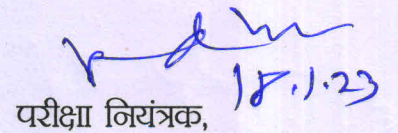 18.1.23
परीक्षा नियंत्रक,